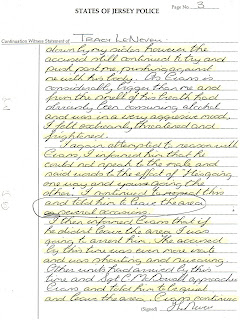 STATES OF JERSEY POLICE
Page No. 3
Continuation Witness Statement of Tracy Le Neven
down by my sides however the
accused still continued to try and
push past me pushing against
me with his body. As Evans is
considerably bigger than me and
from the smell of his breath had
obviously been consuming alcohol
and was in a very aggressive mood,
I felt extremely threatened and
frightened.
I again attempted to reason with
Evans, I informed him that he
could not speak to the male and
said words to the effect of He's going
one way and you're going the
other. I continued to repeat this
and told him to leave the area
on several occasions.
I then informed Evans that if
he didn't leave the area I was
going to arrest him. The accused
by this time was even more irate
and was shouting and swearing.
Other units had arrived by this
time and Sgt C McDonald approached
Evans, and told him to be quiet
and leave the area. Evans continued
(Signed)